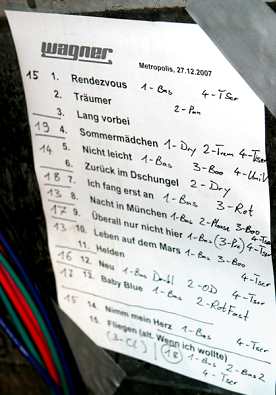 wagner
Metropolis, 27.12.2007
15 1. Rendezvous 1-Bas 4-TSer
2. Träumer 2-Pan
3. Lang vorbei
19 4. Sommermädchen 1-Dry 2-Trem 4-TSer
14 5. Nicht leicht 1-Bas 3-Boo 4-UniV
6. Zurück im Dschungel 2-Dry
18 7. Ich fang erst an 1-Bas 3-Rot
13 8. Nacht in München 1-Bas 3-Boo
17 9. Überall nur nicht hier 1-Bas (3-Pa) 4-TSer
13 10. Leben auf dem Mars 1-Bas 3-Boo
11. Helden 4-TSer
16 12. Neu 1-Bas 2-OD 4-TSer
17 13. Baby Blue 1-Bas 2-RotFast
15 14. Nimm mein Herz 1-Bas 4-TSer
15. Fliegen (alt. Wenn ich wollte)
(3-Cl) 18 1-Bas 2-Bas2
4-TSer